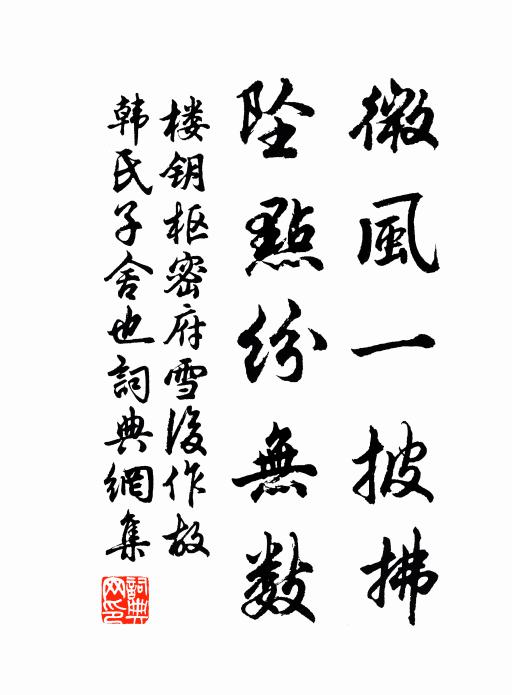 微風一披拂
墜點紛無数
楼钥枢密府雪後作故
韩氏子舍也詞典網集
詞典网印